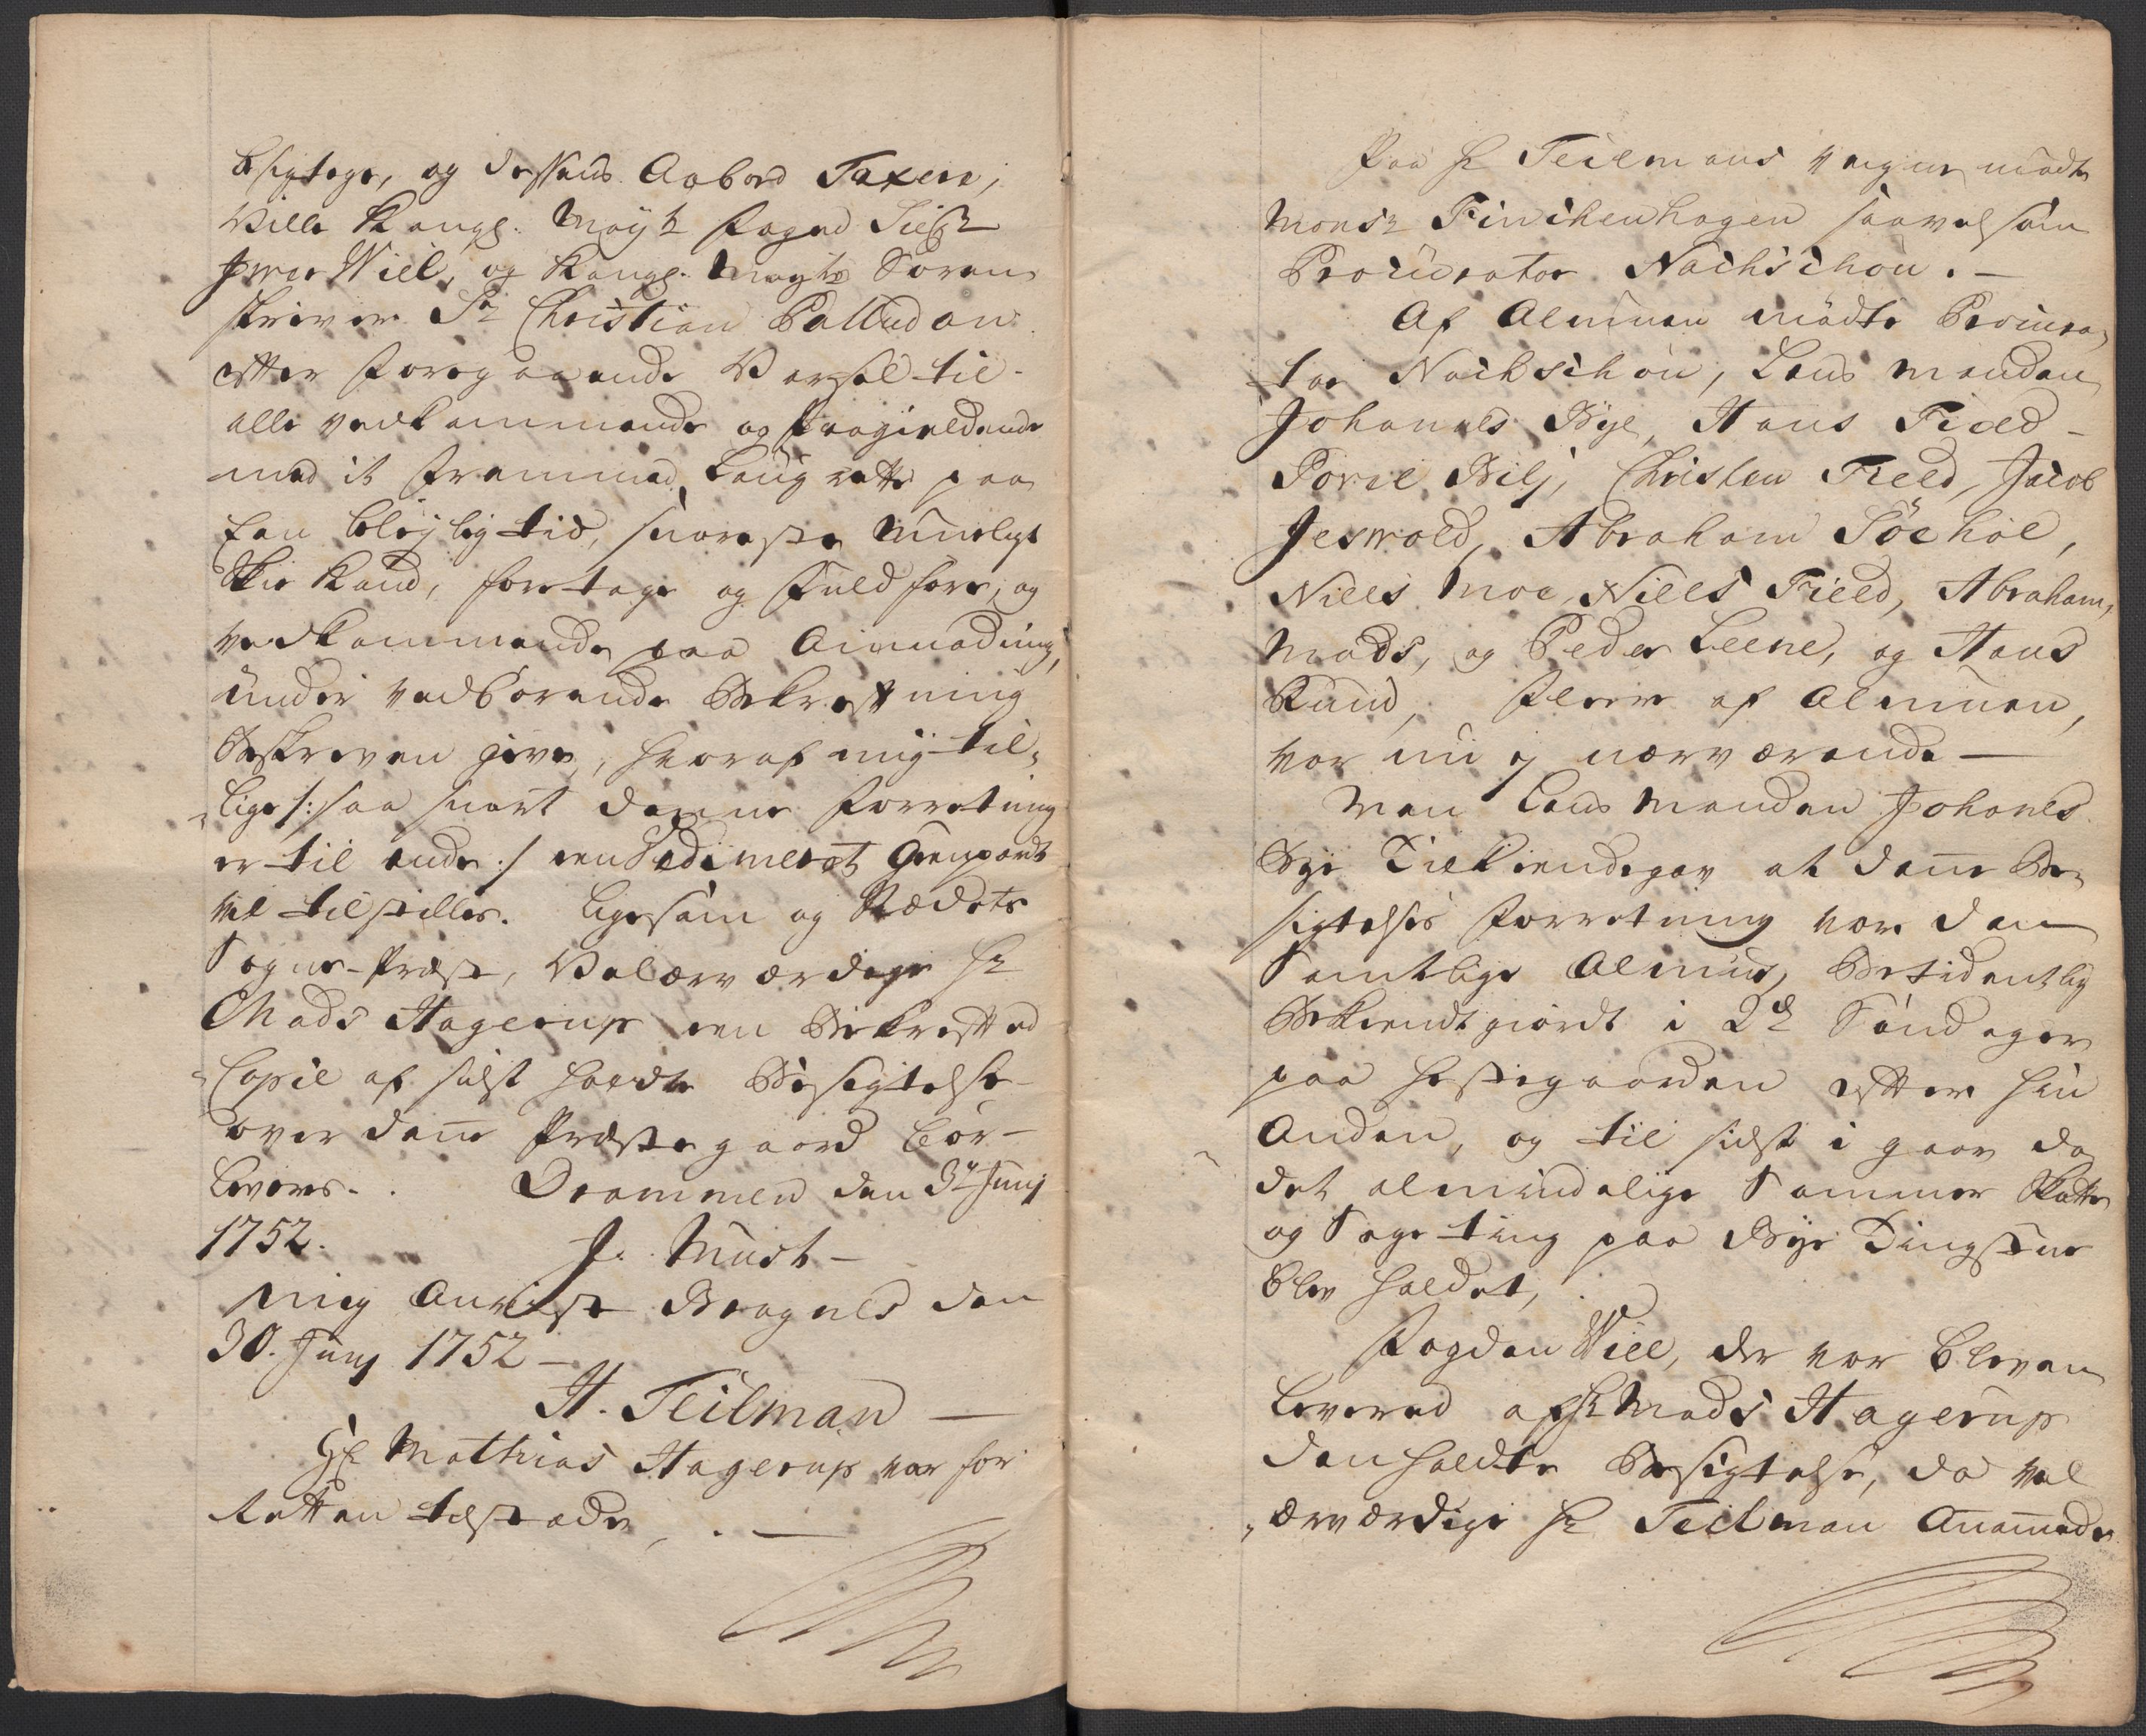 besigtege, og dessens Aabod Taxere,
Ville Kongl: Mayts Foged Sieur
Iver Wiel, og Kongl: Mayts Soren
skriver Sr Christian Palludan
efter foregaaende Varsel til
alle vedkommende og fragieldende
med it fremmed Laugrette paa
een beleylig tid, snareste Mueligt
Skie Kand, foretage og fuldføre, og
vedkommende paa Anmodning,
under vedbørende Bekreftning
Beskreven give, hvoraf mig til-
lige /: saa snart denne Forretning
er til ende :/ een Vedimeret Genpart
vil tilstilles. ligesom og Stædets
Sogne-Præst, Velærværdige Hr
Mads Hagerup een Bekreftet
Copie af sidst holdte Besigtelse
over denne Præstegaard bør-
leveres. Drammen den 3die Junij
1752. J. Must
mig Anvist Bragnes den
30. Junij 1752
H. Teilman
Hr Mathias Hagerup var for
Retten tilstæde,
Paa Hr Teilmans veigne mødte
Monsr Finchenhagen saavelsom
Procurator Nachschou.
Af Almuen mødte Procura-
tor Nachschou, Lens manden
Johannes Bye, Hans Field
Povel Bilj, Christen Field, Jacob
Jeswold, Abraham Søehol,
Niels Moe, Niels Field, Abraham,
Mads, og Peder Leene, og Hans
Rund, Fleere af Almuen,
var nu ej nærværende
Men Lens manden Johanes
Bye Tilkiendegav at denne Be-
sigtelses Forretning var den
Samtlige Almue, Betidentlig
Bekiendtgiordt i 2de Søndager
paa Hestegaarden efter hin
Anden, og til sidst i gaar da
det almindelige Sommer Skatte
og Sage ting paa Bye Tingstue
blev holdet,
Fogden Wiel, der var bleven
leveret af Hr Mads Hagerup
den holdte Besigtelse, da vel
ærværdige Hr Teilman Anammede